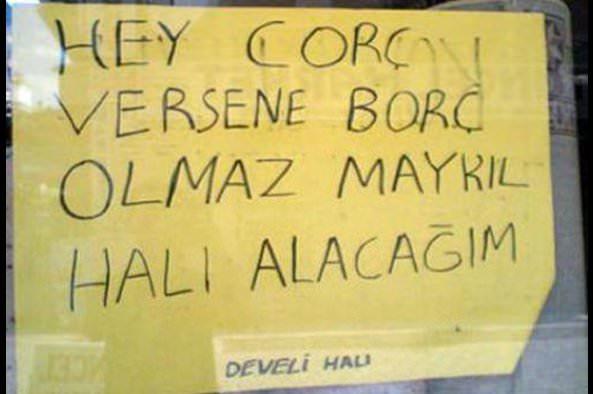 HEY CORÇ
VERSENE BORÇ
OLMAZ MAYKIL
HALI ALACAĞIM
DEVELİ HALI